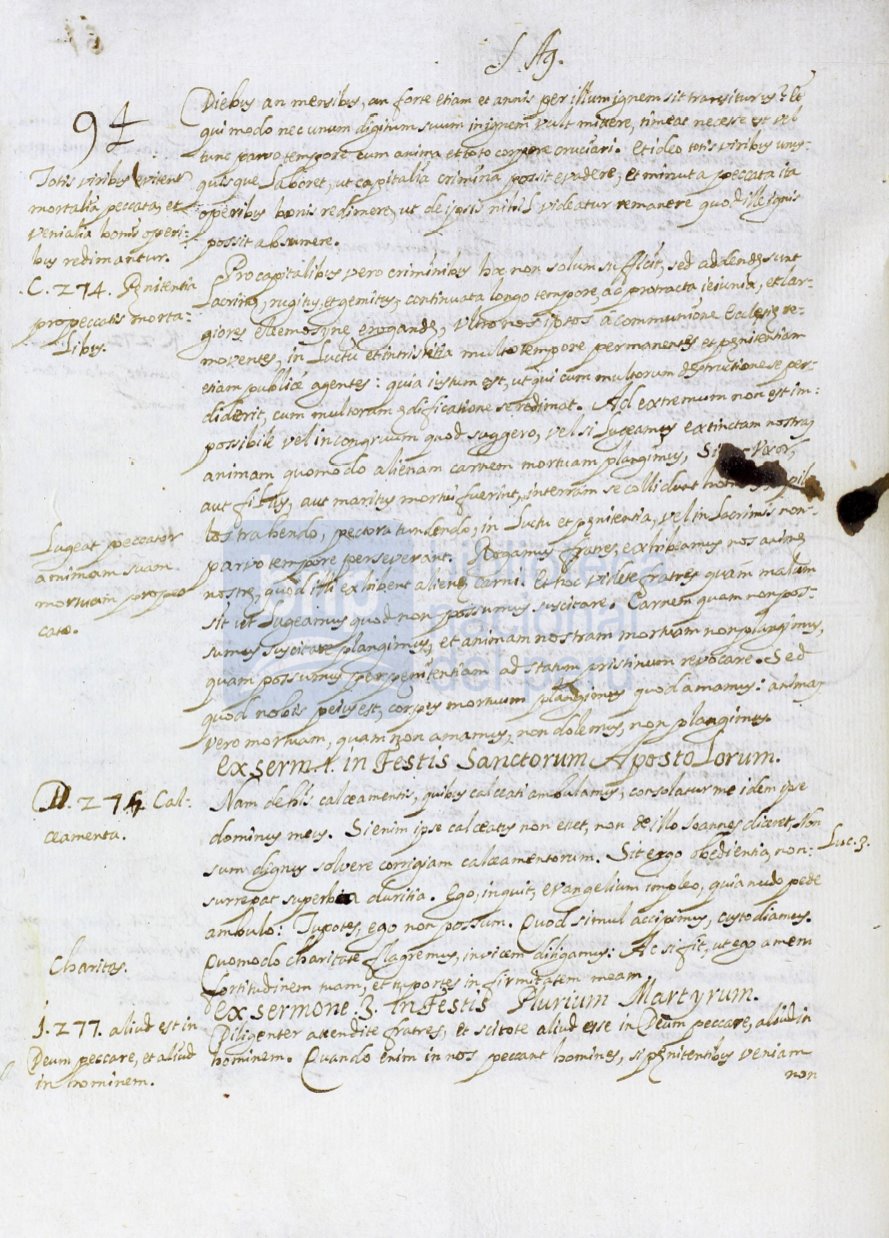 S. Ag.
94
Diebus an mensibus, an forte etiam et annis per illum ignem sit transiturus? Et
qui modo nec unum digitum suum in ignem vult mittere, timeat necesse est vel
tunc parvo tempore cum anima et toto corpore cruciari. Et ideo totis viribus unus-
quisque laboret, ut capitalia crimina possit evadere; et minuta peccata ita
operibus bonis redimere, ut de ipsis nihil videatur remanere quod ille ignis
possit absumere.
Totis viribus vitent
mortalia peccata, et
venialia bonis operi-
bus redimantur.
C. 274. Pęnitentia
pro peccatis morta-
libus.
Pro capitalibus vero criminibus hoc non solum sufficit, sed addendę sunt
lacrimę, rugitus, et gemitus, continuata longo tempore, ac protracta ieiunia, et lar-
giores eleemosynę erogandę, ultro nos ipsos à communione Ecclesię re-
moventes, in luctu et in tristitia multo tempore permanentes et pęnitentiam
etiam publicè agentes: quia iustum est, ut qui cum multorum destructione se per-
didit, cum multorum ędificatione se redimat. Ad extremum non est im-
possibile vel incongruum quod suggero, vel si lugeamus extinctam nostram
animam quomodo alienam carnem mortuam plangimus. Si Vxor,
aut filius, aut maritus mortui fuerint, in terram se collidunt homines, capil-
los trahendo, pectora tundendo, in luctu et pęnitentia, vel in lacrimis non
parvo tempore perseverant. Rogamus fratres, exhibeamus nos animę
nostrę, quod illi exhibent alienę carni. Et hoc videte fratres quàm malum
sit ut lugeamus quod non possumus suscitare. Carnem quam non pos-
sumus suscitare plangimus, et animam nostram mortuam non plangimus,
quam possumus per pęnitentiam ad statum pristinum revocare. Sed
quod nobis peius est, corpus mortuum plangimus quod amamus: animam
vero mortuam, quam non amamus, non dolemus, non plangimus.
Lugeat peccator
animam suam
mortuam pro pec-
cato.
Ex serm. 1. in Festis Sanctorum Apostolorum.
D. 275. Cal-
ceamenta.
Nam de his calceamentis, quibus calceati ambulamus, consolatur me idem ipse
dominus meus. Si enim ipse calceatus non esset, non de illo Ioannes diceret, Non
sum dignus solvere corrigiam calceamentorum. Sit ergo obedientia, non
surrepat superba duritia. Ego, inquit, Evangelium impleo, quia nudo pede
ambulo: Tu potes, ego non possum. Quod simul accipimus, custodiamus.
Quomodo charitate flagremus, invicem diligamus: Ac si fit, ut ego amem
fortitudinem tuam, et tu portes infirmitatem meam.
Luc. 3.
Charitas.
Ex sermone 3. in Festis Plurium Martyrum.
1. 277. aliud est in
Deum peccare, et aliud
in hominem.
Diligenter attendite fratres, et scitote aliud esse in Deum peccare, aliud in
hominem. Quando enim in nos peccant homines, si pęnitentibus veniam
non
biblioteca
nacional
del perú
bnp